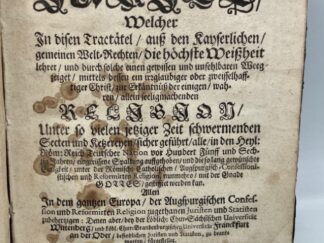 Welcher
In disen Tractätel / auß den Kayserlichen /
gemeinen Welt-Rechten / die höchste Weißheit
lehret / und durch solche einen gewissen und unfehlbaren Weeg
zeiget / mittels dessen ein irrglaubiger oder zweiffelhaff-
tiger Christ / zur Erkandtnuß der einigen / wah-
ren / allein seeligmachenden
RELIGION /
Unter so vielen jetziger Zeit schwermenden
Secten und Ketzereyen / sicher geführt / alle / in dem Heyl:
Röm: Reich Teutscher Nation vor Hundert Fünff und Sech-
eingerissene Spaltung auffgehoben / und die so lang gewünschte
unter der Römisch Catholischen / Augspurgisch-Confessioni-
stischen und Reformirten Religion nunmehro / mit der Gnade
GOTTES / gestifftet werden kan.
Allen
In dem gantzen Europa / der Augspurgischen Confes-
sion und Reformirten Religion zugethanen Juristen und Statisten
zubehertzigen: Denen aber / bey der Löbl: Chur-Sächsischen Universität
Wittenberg / und Löbl: Chur-Brandenburgischen Universität Franckfurt
an der Oder / befindlichen Juristen und Statisten / zu beant-